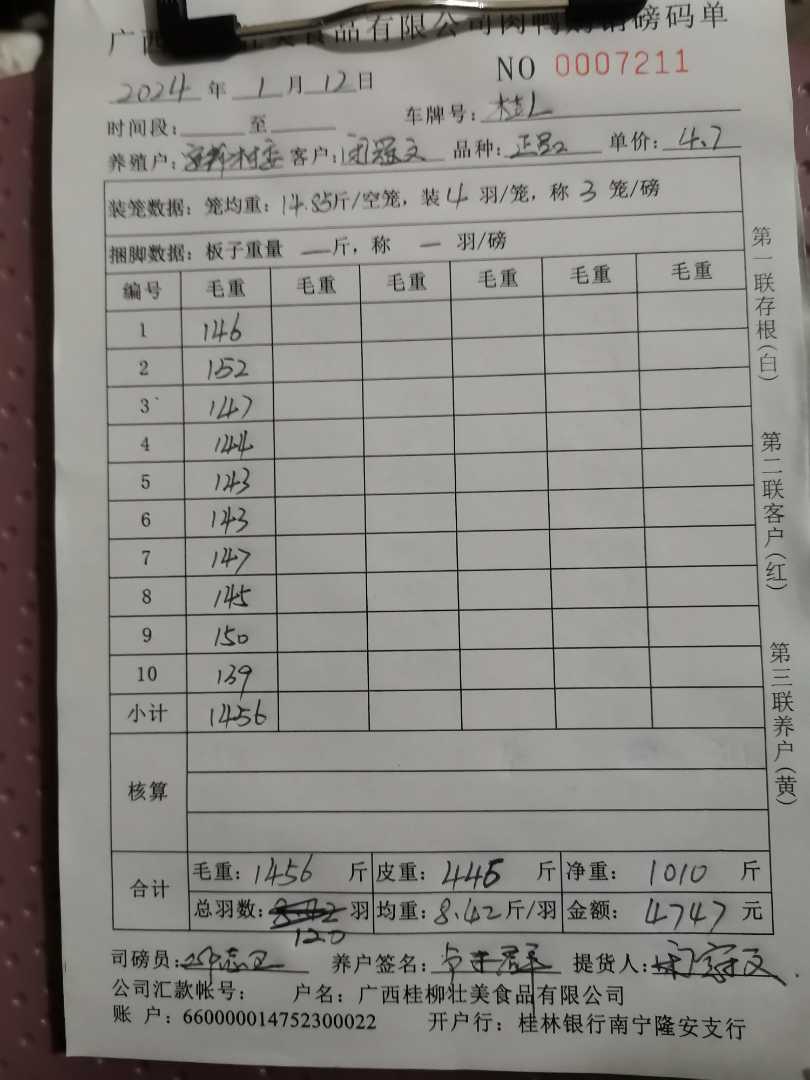 广西 壮美食品有限公司肉鸭购销磅码单
2024 年 1 月 12 日 NO 0007211
时间段: 至 车牌号: 桂L
养殖户: 村委 客户: 闭冠文 品种: 正品2 单价: 4.7
装笼数据: 笼均重: 14.85斤/空笼, 装 4 羽/笼, 称 3 笼/磅
捆脚数据: 板子重量 — 斤, 称 — 羽/磅
编号 毛重 毛重 毛重 毛重 毛重 毛重
1 146
2 152
3 147
4 144
5 143
6 143
7 147
8 145
9 150
10 139
小计 1456
核算
合计 毛重: 1456 斤 皮重: 446 斤 净重: 1010 斤
总羽数: 8.42 羽 均重: 8.42 斤/羽 金额: 4747 元
120
司磅员: 养户签名: 提货人: 闭冠文
公司汇款帐号: 户名: 广西桂柳壮美食品有限公司
账 户: 660000014752300022 开户行: 桂林银行南宁隆安支行
第一联存根(白) 第二联客户(红) 第三联养户(黄)